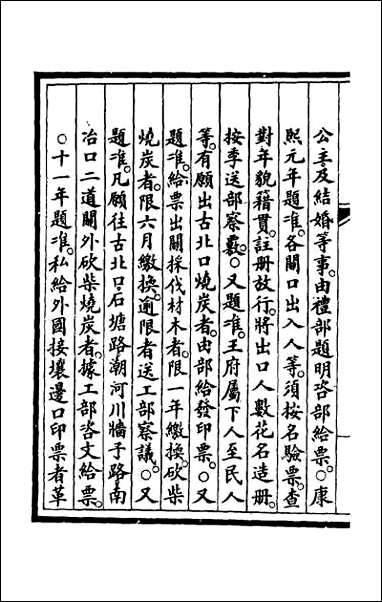 公主及結婚等事。由禮部題明咨部給票。○康
熙元年題准。各關口出入人等。須按名驗票。查
對年貌籍貫。註册放行。將出口人數花名造册。
按季送部察覈。○又題准。王府屬下人至民人
等。有願出古北口燒炭者。由部給發印票。○又
題准。給票出關採伐材木者。限一年繳換。砍柴
燒炭者。限六月繳換。逾限者送工部察議。○又
題准。凡願往古北口石塘路潮河川牆子路南
冶口二道關外砍柴燒炭者。據工部咨文給票。
○十一年題准。私給外國接壤邊口印票者革